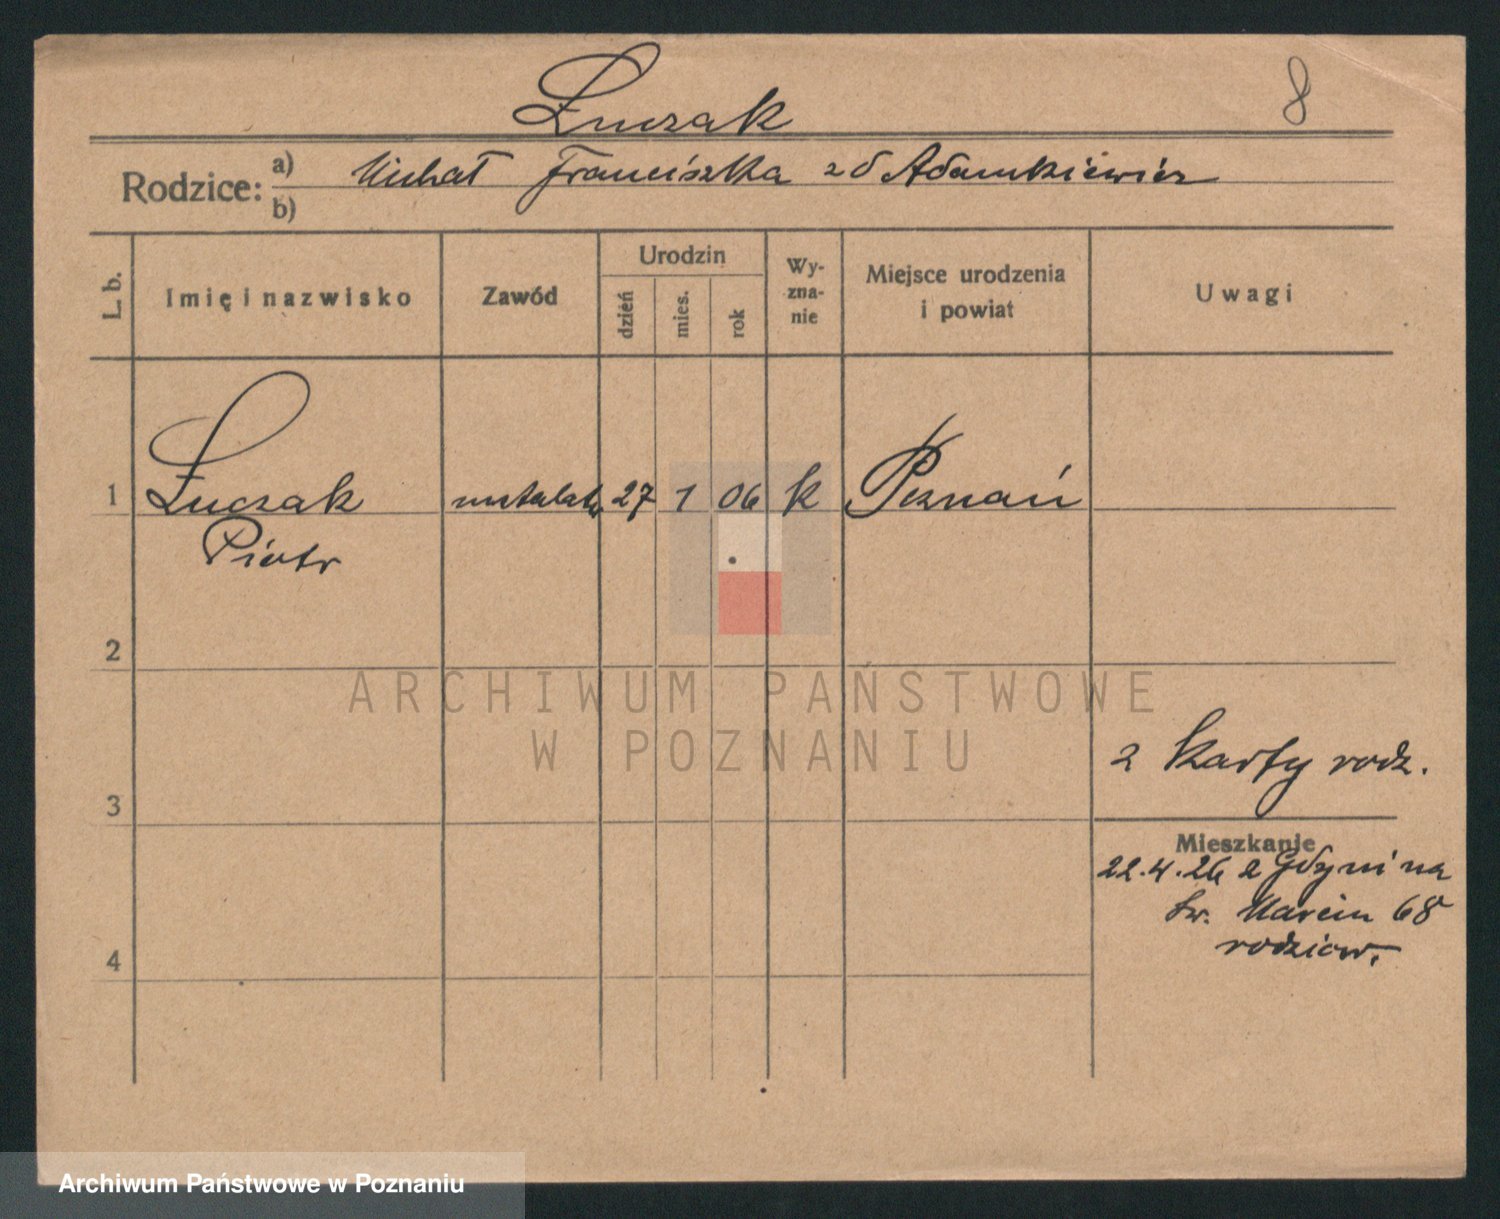 Łuczak
8
Rodzice: a) Michał Franciszka zd Adamkiewicz
b)
L. b.
Imię i nazwisko
Zawód
Urodzin
dzień
mies.
rok
Wy-
zna-
nie
Miejsce urodzenia
i powiat
Uwagi
1 Łuczak 27 1 06 k Poznań
Piotr
2
ARCHIWUM PAŃSTWOWE
W POZNANIU
z karty rodz.
3
Mieszkanie
22.4.26 z Gdyni na
Św. Marcin 68
rodziców.
4
Archiwum Państwowe w Poznaniu